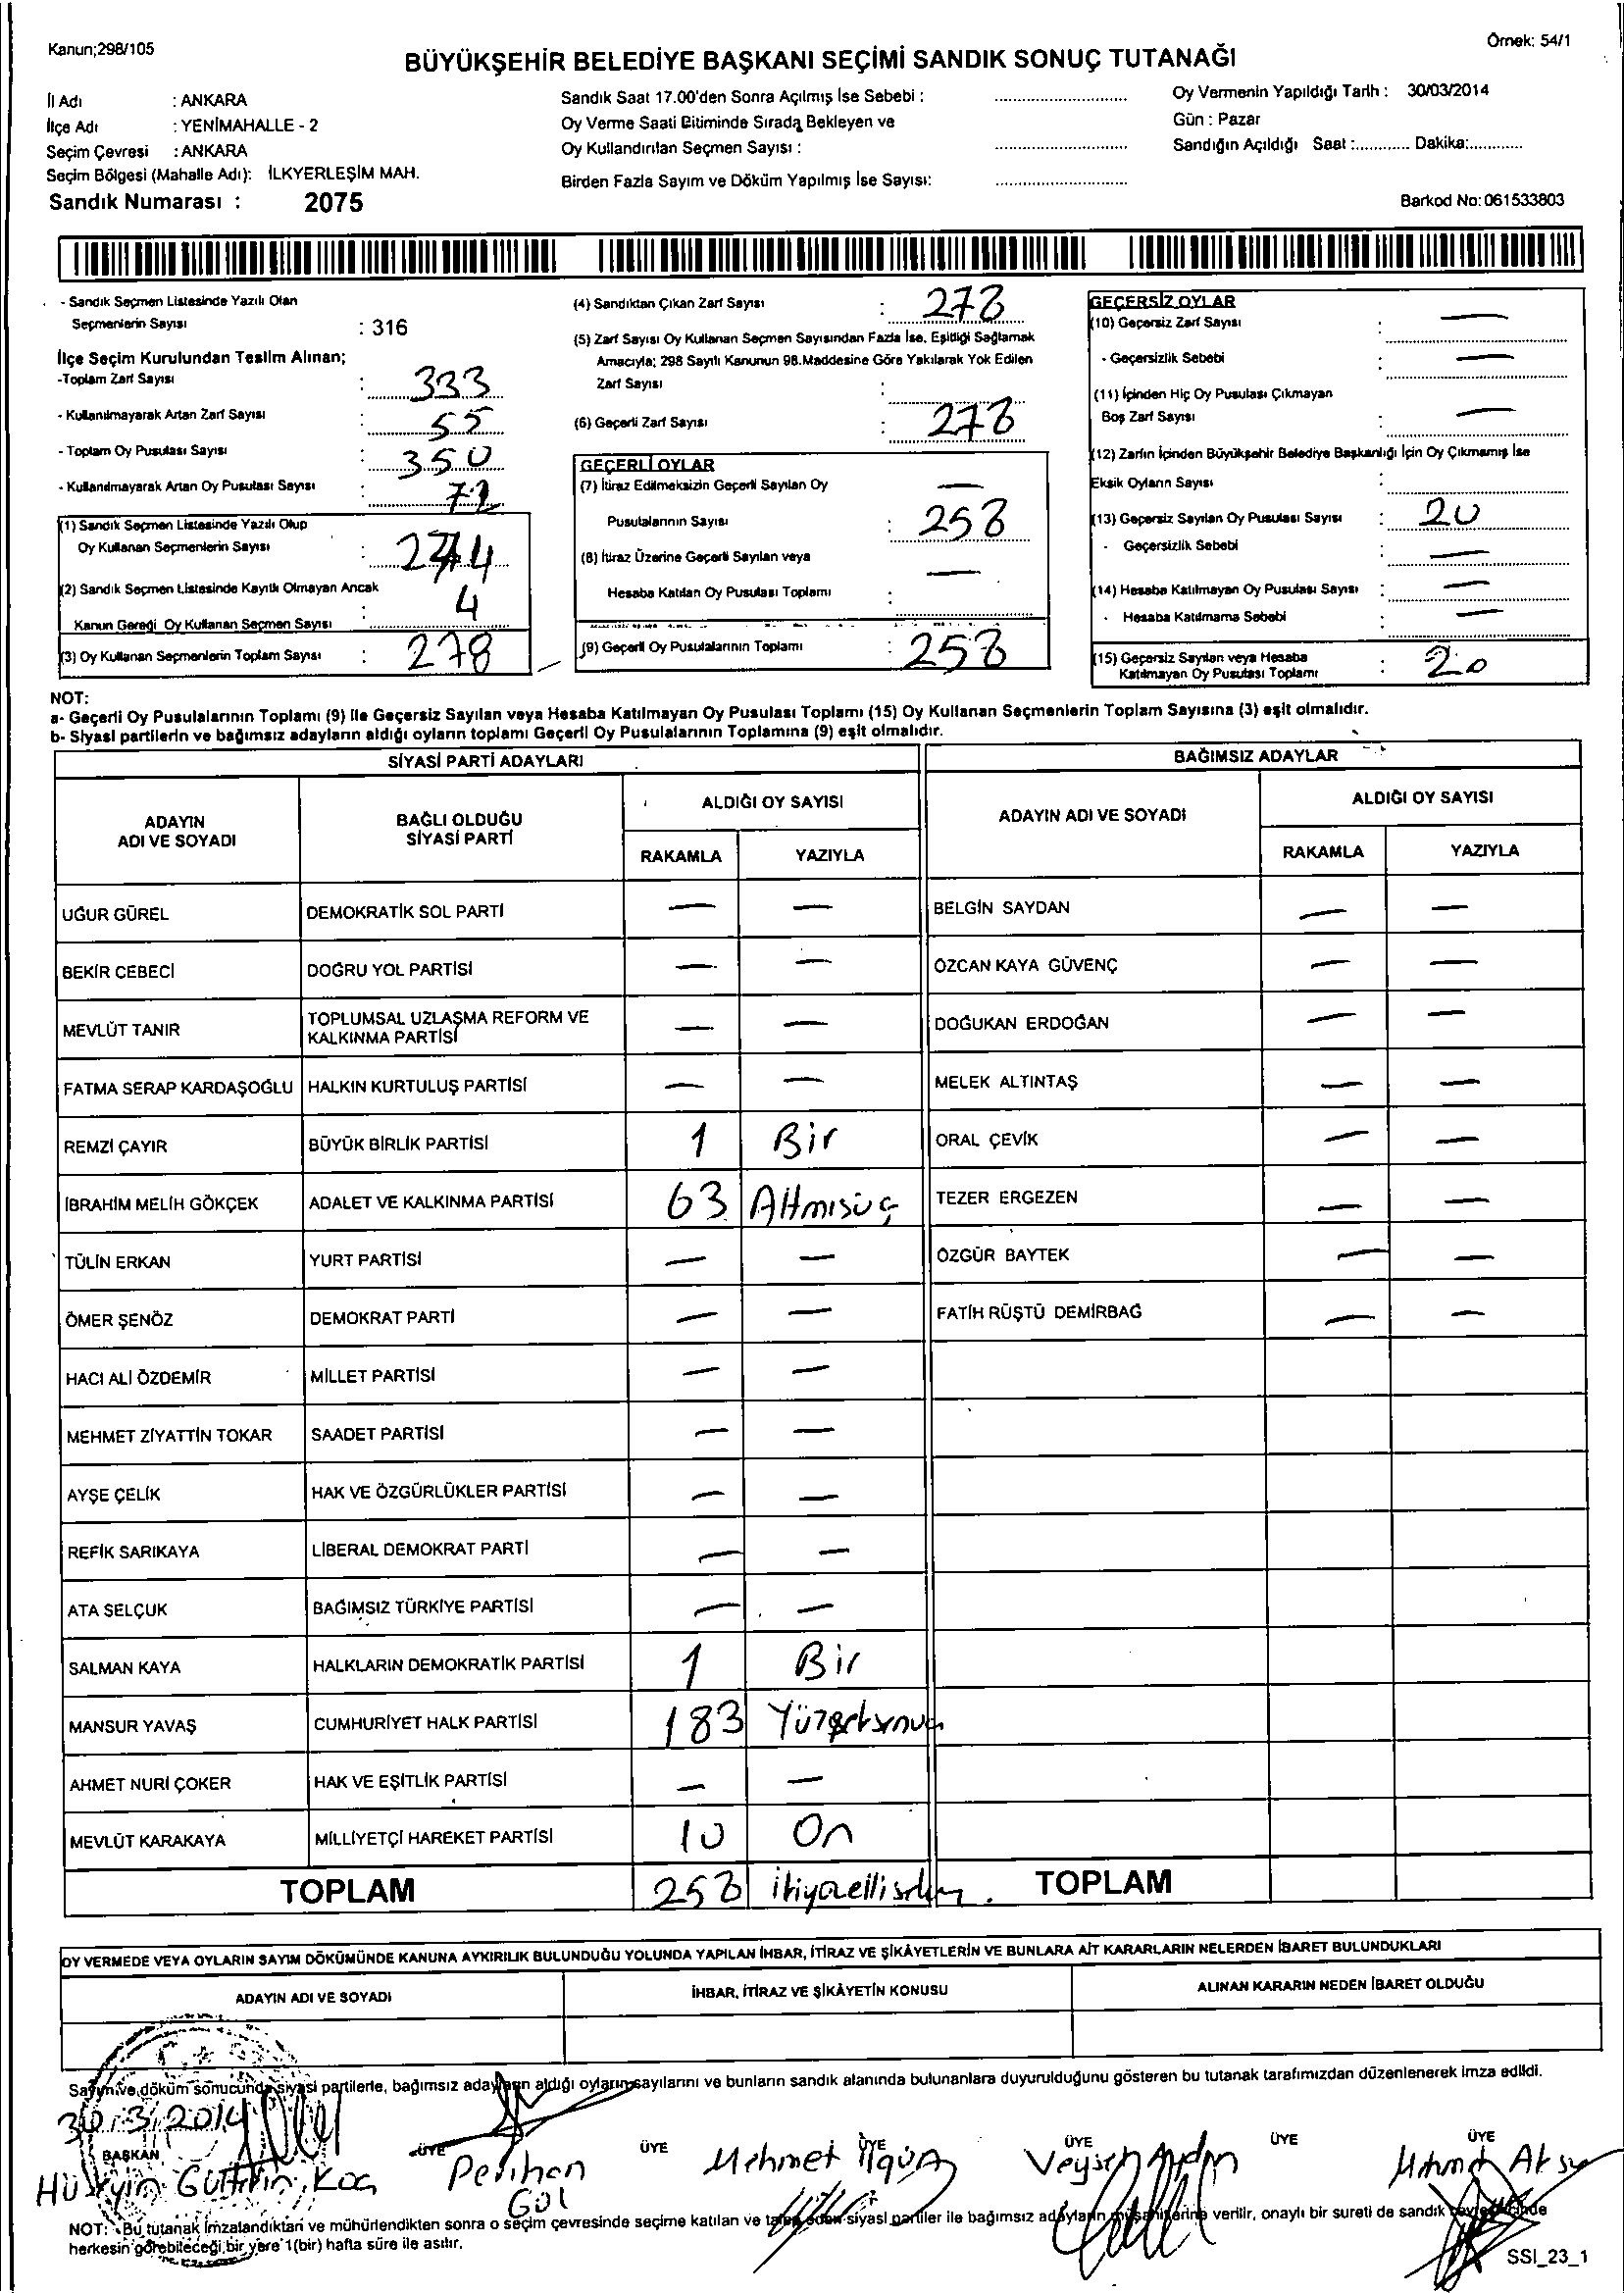 Kanun;298/105
Örnek: 54/1
BÜYÜKŞEHİR BELEDİYE BAŞKANI SEÇİMİ SANDIK SONUÇ TUTANAĞI
İl Adı : ANKARA
İlçe Adı : YENİMAHALLE - 2
Seçim Çevresi : ANKARA
Seçim Bölgesi (Mahalle Adı): İLKYERLEŞİM MAH.
Sandık Numarası : 2075
Sandık Saat 17.00'den Sonra Açılmış İse Sebebi :
Oy Verme Saati Bitiminde Sırada Bekleyen ve
Oy Kullandırılan Seçmen Sayısı :
Birden Fazla Sayım ve Döküm Yapılmış İse Sayısı:
Oy Vermenin Yapıldığı Tarih : 30/03/2014
Gün : Pazar
Sandığın Açıldığı Saat :............ Dakika:............
Barkod No: 061533803
- Sandık Seçmen Listesinde Yazılı Olan
Seçmenlerin Sayısı : 316
İlçe Seçim Kurulundan Teslim Alınan;
-Toplam Zarf Sayısı : 333
- Kullanılmayarak Artan Zarf Sayısı : 55
- Toplam Oy Pusulası Sayısı : 350
- Kullanılmayarak Artan Oy Pusulası Sayısı : 72
(1) Sandık Seçmen Listesinde Yazılı Olup
Oy Kullanan Seçmenlerin Sayısı : 274
(2) Sandık Seçmen Listesinde Kayıtlı Olmayan Ancak
Kanun Gereği Oy Kullanan Seçmen Sayısı : 4
(3) Oy Kullanan Seçmenlerin Toplam Sayısı : 278
(4) Sandıktan Çıkan Zarf Sayısı : 278
(5) Zarf Sayısı Oy Kullanan Seçmen Sayısından Fazla İse, Eşitliği Sağlamak
Amacıyla; 298 Sayılı Kanunun 98.Maddesine Göre Yakılarak Yok Edilen
Zarf Sayısı :
(6) Geçerli Zarf Sayısı : 278
GEÇERLİ OYLAR
(7) İtiraz Edilmeksizin Geçerli Sayılan Oy —
Pusulalarının Sayısı : 258
(8) İtiraz Üzerine Geçerli Sayılan veya
Hesaba Katılan Oy Pusulası Toplamı : —
(9) Geçerli Oy Pusulalarının Toplamı : 258
GEÇERSİZ OYLAR
(10) Geçersiz Zarf Sayısı : —
- Geçersizlik Sebebi : —
(11) İçinden Hiç Oy Pusulası Çıkmayan
Boş Zarf Sayısı : —
(12) Zarfın İçinden Büyükşehir Belediye Başkanlığı İçin Oy Çıkmamış İse
Eksik Oyların Sayısı :
(13) Geçersiz Sayılan Oy Pusulası Sayısı : 20
- Geçersizlik Sebebi : —
(14) Hesaba Katılmayan Oy Pusulası Sayısı : —
- Hesaba Katılmama Sebebi : —
(15) Geçersiz Sayılan veya Hesaba
Katılmayan Oy Pusulası Toplamı : 20
NOT:
a- Geçerli Oy Pusulalarının Toplamı (9) ile Geçersiz Sayılan veya Hesaba Katılmayan Oy Pusulası Toplamı (15) Oy Kullanan Seçmenlerin Toplam Sayısına (3) eşit olmalıdır.
b- Siyasi partilerin ve bağımsız adayların aldığı oyların toplamı Geçerli Oy Pusulalarının Toplamına (9) eşit olmalıdır.
SİYASİ PARTİ ADAYLARI
BAĞIMSIZ ADAYLAR
ADAYIN ADI VE SOYADI
BAĞLI OLDUĞU SİYASİ PARTİ
ALDIĞI OY SAYISI
RAKAMLA YAZIYLA
ADAYIN ADI VE SOYADI
ALDIĞI OY SAYISI
RAKAMLA YAZIYLA
UĞUR GÜREL DEMOKRATİK SOL PARTİ — — BELGİN SAYDAN — —
BEKİR CEBECİ DOĞRU YOL PARTİSİ — — ÖZCAN KAYA GÜVENÇ — —
MEVLÜT TANIR TOPLUMSAL UZLAŞMA REFORM VE KALKINMA PARTİSİ — — DOĞUKAN ERDOĞAN — —
FATMA SERAP KARDAŞOĞLU HALKIN KURTULUŞ PARTİSİ — — MELEK ALTINTAŞ — —
REMZİ ÇAYIR BÜYÜK BİRLİK PARTİSİ 1 Bir ORAL ÇEVİK — —
İBRAHİM MELİH GÖKÇEK ADALET VE KALKINMA PARTİSİ 63 Altmısüç TEZER ERGEZEN — —
TÜLİN ERKAN YURT PARTİSİ — — ÖZGÜR BAYTEK — —
ÖMER ŞENÖZ DEMOKRAT PARTİ — — FATİH RÜŞTÜ DEMİRBAĞ — —
HACI ALİ ÖZDEMİR MİLLET PARTİSİ — —
MEHMET ZİYATTİN TOKAR SAADET PARTİSİ — —
AYŞE ÇELİK HAK VE ÖZGÜRLÜKLER PARTİSİ — —
REFİK SARIKAYA LİBERAL DEMOKRAT PARTİ — —
ATA SELÇUK BAĞIMSIZ TÜRKİYE PARTİSİ — —
SALMAN KAYA HALKLARIN DEMOKRATİK PARTİSİ 1 Bir
MANSUR YAVAŞ CUMHURİYET HALK PARTİSİ 183
AHMET NURİ ÇOKER HAK VE EŞİTLİK PARTİSİ — —
MEVLÜT KARAKAYA MİLLİYETÇİ HAREKET PARTİSİ 10 On
TOPLAM 258 TOPLAM
OY VERMEDE VEYA OYLARIN SAYIM DÖKÜMÜNDE KANUNA AYKIRILIK BULUNDUĞU YOLUNDA YAPILAN İHBAR, İTİRAZ VE ŞİKÂYETLERİN VE BUNLARA AİT KARARLARIN NELERDEN İBARET BULUNDUKLARI
ADAYIN ADI VE SOYADI İHBAR, İTİRAZ VE ŞİKÂYETİN KONUSU ALINAN KARARIN NEDEN İBARET OLDUĞU
Sayım ve döküm sonucunda siyasi partilerle, bağımsız adayların aldığı oyların sayılarını ve bunların sandık alanında bulunanlara duyurulduğunu gösteren bu tutanak tarafımızdan düzenlenerek imza edildi.
30/3/2014
BAŞKAN ÜYE ÜYE ÜYE ÜYE ÜYE ÜYE
Perihan Gül
Mehmet
NOT: Bu tutanak imzalandıktan ve mühürlendikten sonra o seçim çevresinde seçime katılan ve talep eden siyasi partiler ile bağımsız adayların müşahitlerine verilir, onaylı bir sureti de sandık çevresinde
herkesin görebileceği bir yere 1(bir) hafta süre ile asılır.
SSI_23_1